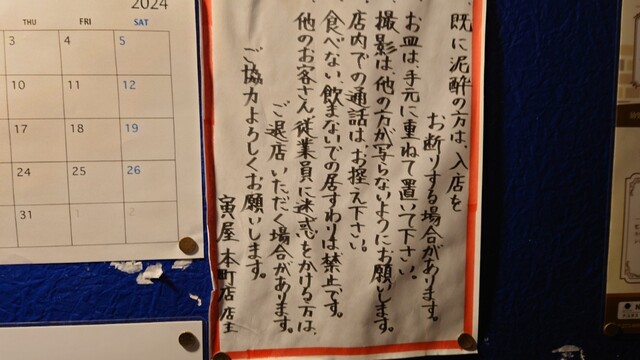 2024
THU FRI SAT
3 4 5
10 11 12
17 18 19
24 25 26
31 1 2
・既に泥酔の方は、入店を
お断りする場合があります。
・お皿は、手元に重ねて置いて下さい。
・撮影は、他の方が写らないようにお願します。
・店内での通話は、お控え下さい。
・食べない、飲まないでの居すわりは禁止です。
・他のお客さん、従業員に迷惑をかける方は、
ご退店いただく場合があります。
ご協力よろしくお願いします。
寅屋 本町店 店主